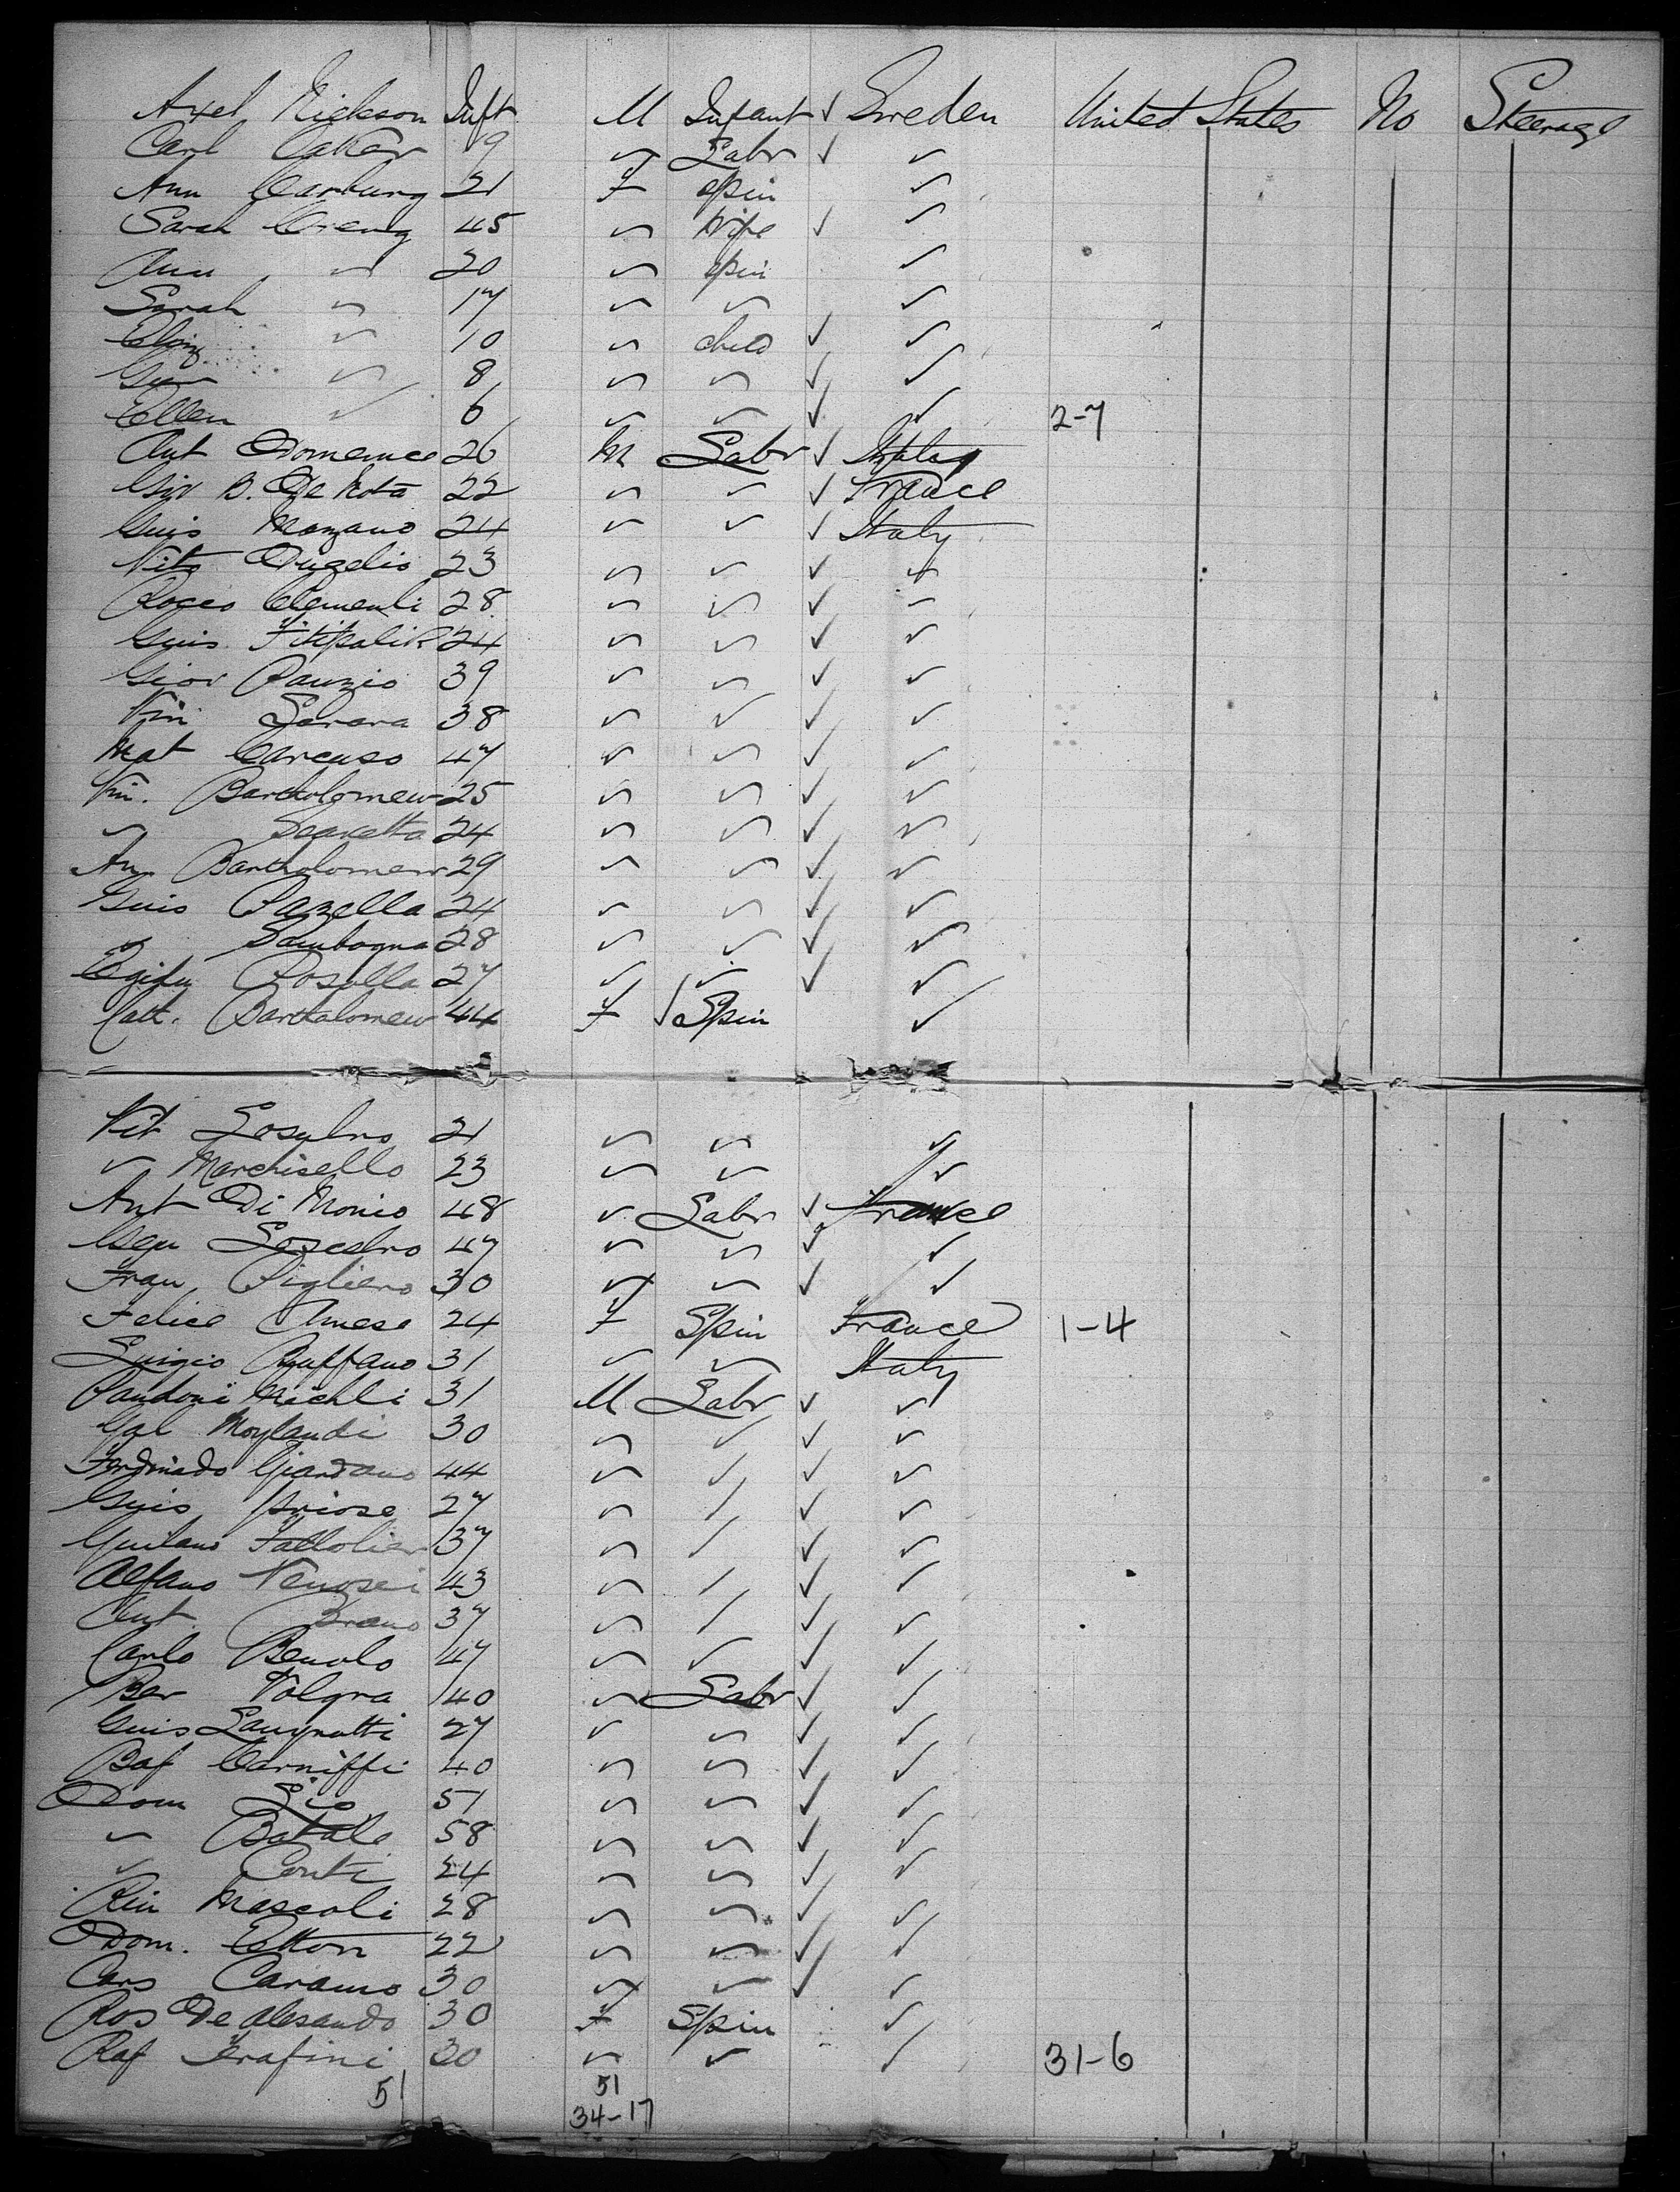 Axel Nickson Inft M Infant ✓ Sweden United States No Steerage
Carl 19 " Labr ✓ "
Ann Carlung 21 F Spin "
Sarah 45 " Wife ✓ "
Ann " 20 " Spin "
Sarah " 17 " " "
" 10 " child ✓ "
" 8 " " ✓ "
Ellen " 6 " " ✓ " 2-7
Ant Domenico 26 M Labr ✓ Italy
Gio B. De Rota 22 " " ✓ France
Guis Monzano 24 " " ✓ Italy
Vito Angelis 23 " " ✓ "
Rocco Clementi 28 " " ✓ "
Guis 24 " " ✓ "
Gior Pauzio 39 " " ✓ "
Vin 38 " " ✓ "
Mat Carcaso 47 " " ✓ "
Vin. Bartholomew 25 " " ✓ "
" Scaretta 24 " " ✓ "
An Bartholomew 29 " " ✓ "
Guis Pazella 24 " " ✓ "
" Sambogna 28 " " ✓ "
Rosella 27 " " ✓ "
Catt. Bartholomew 44 F ✓ Spin "
Vit 21 " " "
" Marchisello 23 " " "
Ant Di Monio 48 " Labr ✓ France
47 " " ✓ "
Fran Pigliero 30 " " ✓ "
Felice Amese 24 F Spin France 1-4
Luigio Ruffano 31 " " Italy
Pandoni Michli 31 M Labr ✓ "
Gal Moylandi 30 " " ✓ "
Ferdinado Giardano 44 " " ✓ "
Guis Ariose 27 " " ✓ "
37 " " ✓ "
Alfano Venosei 43 " " ✓ "
Ant Brano 37 " " ✓ "
Carlo Benolo 47 " " ✓ "
Ber Volgra 40 " Labr ✓ "
Guis Laugnatti 27 " " ✓ "
Raf Carniffi 40 " " ✓ "
Dom Lio 51 " " ✓ "
" Batale 58 " " ✓ "
" Conti 24 " " ✓ "
Rin Mascoli 28 " " ✓ "
Dom. Ettori 22 " " ✓ "
Cars Caramo 30 " " ✓ "
Ros De Alesando 30 F Spin "
Raf Serafini 30 " " " 31-6
51 51
34-17